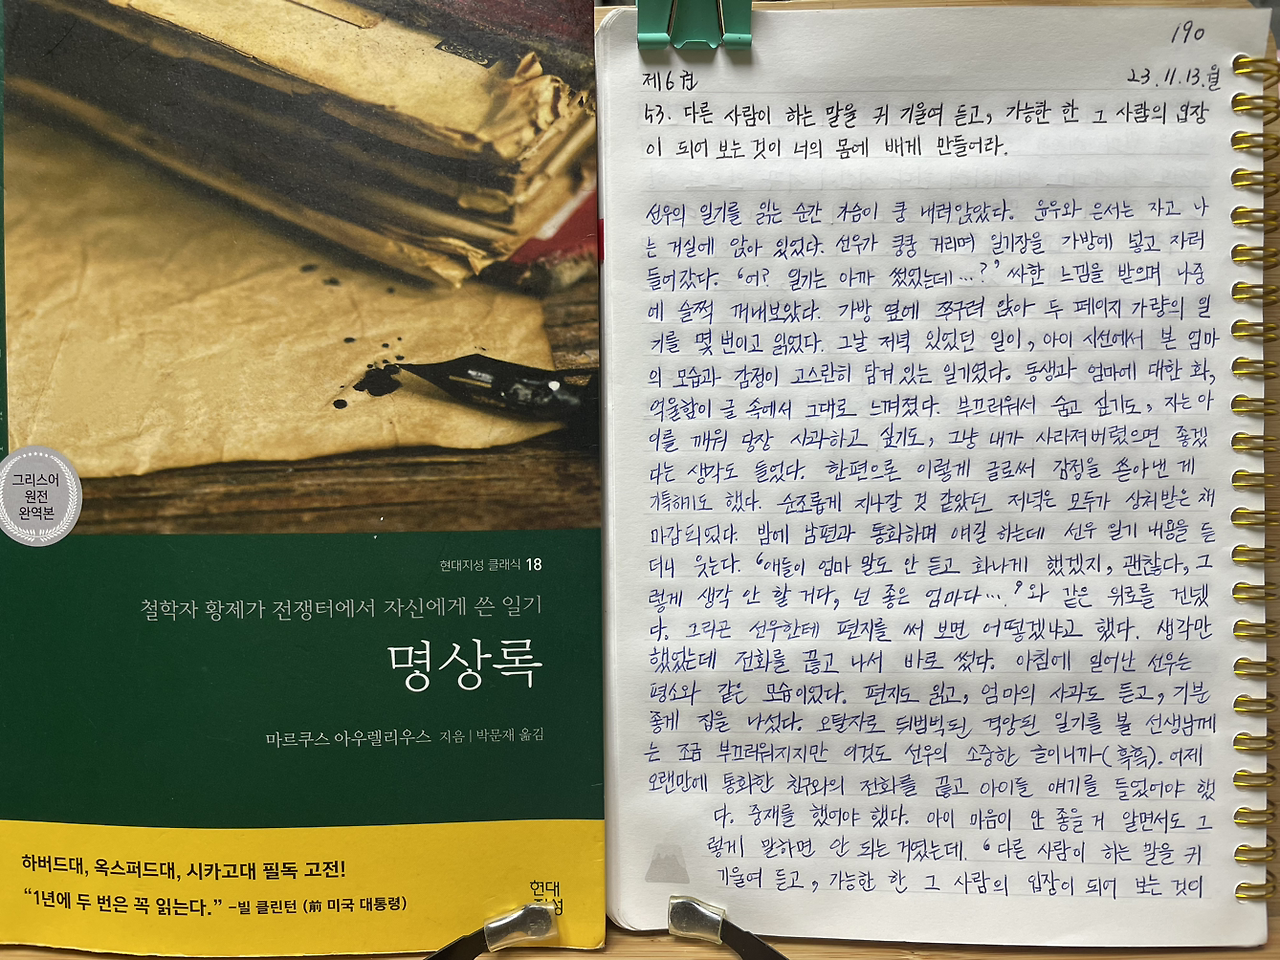 그리스어
원전
완역본
현대지성 클래식 18
철학자 황제가 전쟁터에서 자신에게 쓴 일기
명상록
마르쿠스 아우렐리우스 지음 | 박문재 옮김
하버드대, 옥스퍼드대, 시카고대 필독 고전!
“1년에 두 번은 꼭 읽는다.” –빌 클린턴 (前 미국 대통령)
현대
지성
190
제6권
23.11.13.월
53. 다른 사람이 하는 말을 귀 기울여 듣고, 가능한 한 그 사람의 입장
이 되어 보는 것이 너의 몸에 배게 만들어라.
선우의 일기를 읽는 순간 가슴이 쿵 내려앉았다. 윤우와 은서는 자고 나
는 거실에 앉아 있었다. 선우가 쿵쿵 거리며 일기장을 가방에 넣고 자러
들어갔다. ‘어? 일기는 아까 썼었는데…?’ 싸한 느낌을 받으며 나중
에 슬쩍 꺼내보았다. 가방 옆에 쭈구려 앉아 두 페이지 가량의 일
기를 몇 번이고 읽었다. 그날 저녁 있었던 일이, 아이 시선에서 본 엄마
의 모습과 감정이 고스란히 담겨있는 일기였다. 동생과 엄마에 대한 화,
억울함이 글 속에서 그대로 느껴졌다. 부끄러워서 숨고 싶기도, 자는 아
이를 깨워 당장 사과하고 싶기도, 그냥 내가 사라져버렸으면 좋겠
다는 생각도 들었다. 한편으론 이렇게 글로써 감정을 쏟아낸 게
기특하기도 했다. 순조롭게 지나갈 것 같았던 저녁은 모두가 상처받은 채
마감되었다. 밤에 남편과 통화하며 얘길 하는데 선우 일기 내용을 듣
더니 웃는다. “애들이 엄마 말도 안 듣고 화나게 했겠지, 괜찮다, 그
렇게 생각 안 할 거다, 넌 좋은 엄마다…”와 같은 위로를 건넸
다. 그리곤 선우한테 편지를 써 보면 어떻겠냐고 했다. 생각만
했었는데 전화를 끊고 나서 바로 썼다. 아침에 일어난 선우는
평소와 같은 모습이었다. 편지도 읽고, 엄마의 사과도 듣고, 기분
좋게 집을 나섰다. 오탈자로 뒤범벅된 격앙된 일기를 볼 선생님께
는 조금 부끄러워지지만 이것도 선우의 소중한 글이니까(흑흑). 어제
오랜만에 통화한 친구와의 전화를 끊고 아이들 얘기를 들었어야 했
다. 중재를 했어야 했다. 아이 마음이 안 좋을 거 알면서도 그
렇게 말하면 안 되는 거였는데. “다른 사람이 하는 말을 귀
기울여 듣고, 가능한 한 그 사람의 입장이 되어 보는 것이